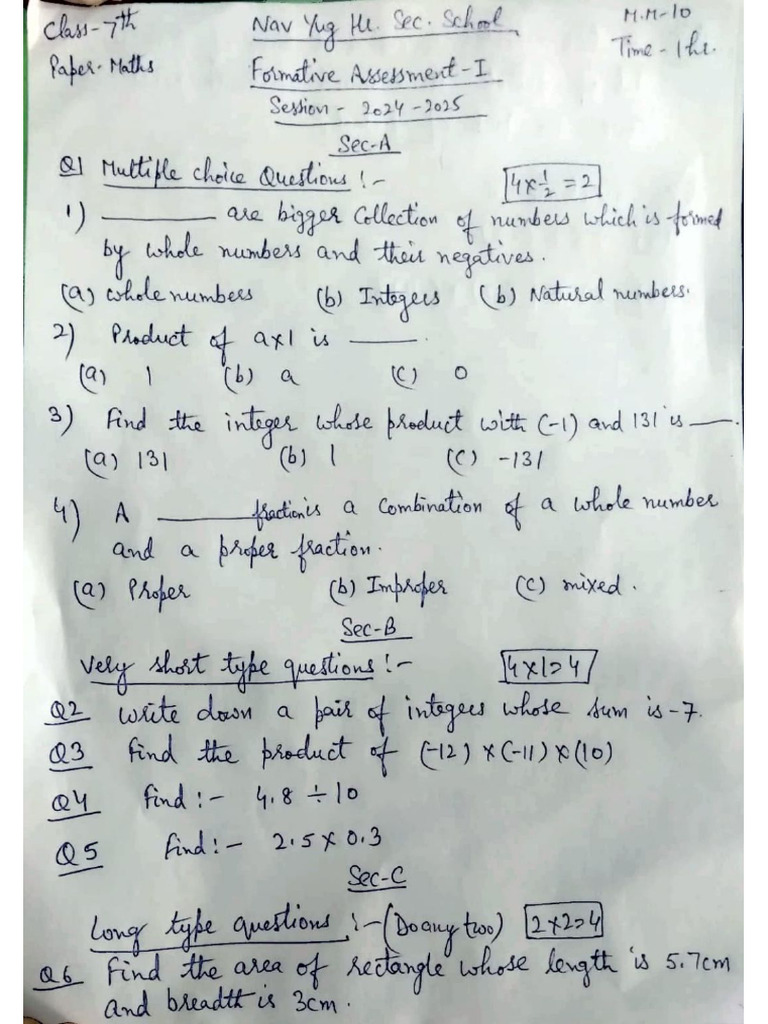 Class-7th Nav Yug Hr. Sec. School M.M-10
Paper- Maths Formative Assessment-I Time-1hr.
Session - 2024-2025
Sec-A
Q1 Multiple choice Questions :- 4×1/2=2
1) ________ are bigger Collection of numbers which is formed
by whole numbers and their negatives.
(a) whole numbers (b) Integers (b) Natural numbers.
2) Product of a×1 is ______.
(a) 1 (b) a (c) 0
3) Find the integer whose product with (-1) and 131 is ____.
(a) 131 (b) 1 (c) -131
4) A ________ fraction is a Combination of a whole number
and a proper fraction.
(a) Proper (b) Improper (c) mixed.
Sec-B
Very short type questions :- 4×1=4
Q2 Write down a pair of integers whose sum is -7.
Q3 Find the product of (-12) × (-11) × (10)
Q4 Find :- 4.8 ÷ 10
Q5 Find :- 2.5 × 0.3
Sec-C
Long type questions :- (Do any two) 2×2=4
Q6 Find the area of rectangle whose length is 5.7cm
and breadth is 3cm.